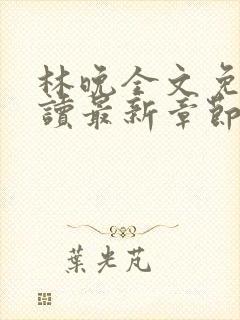 林晚全文免
讀最新章節
葉光芃